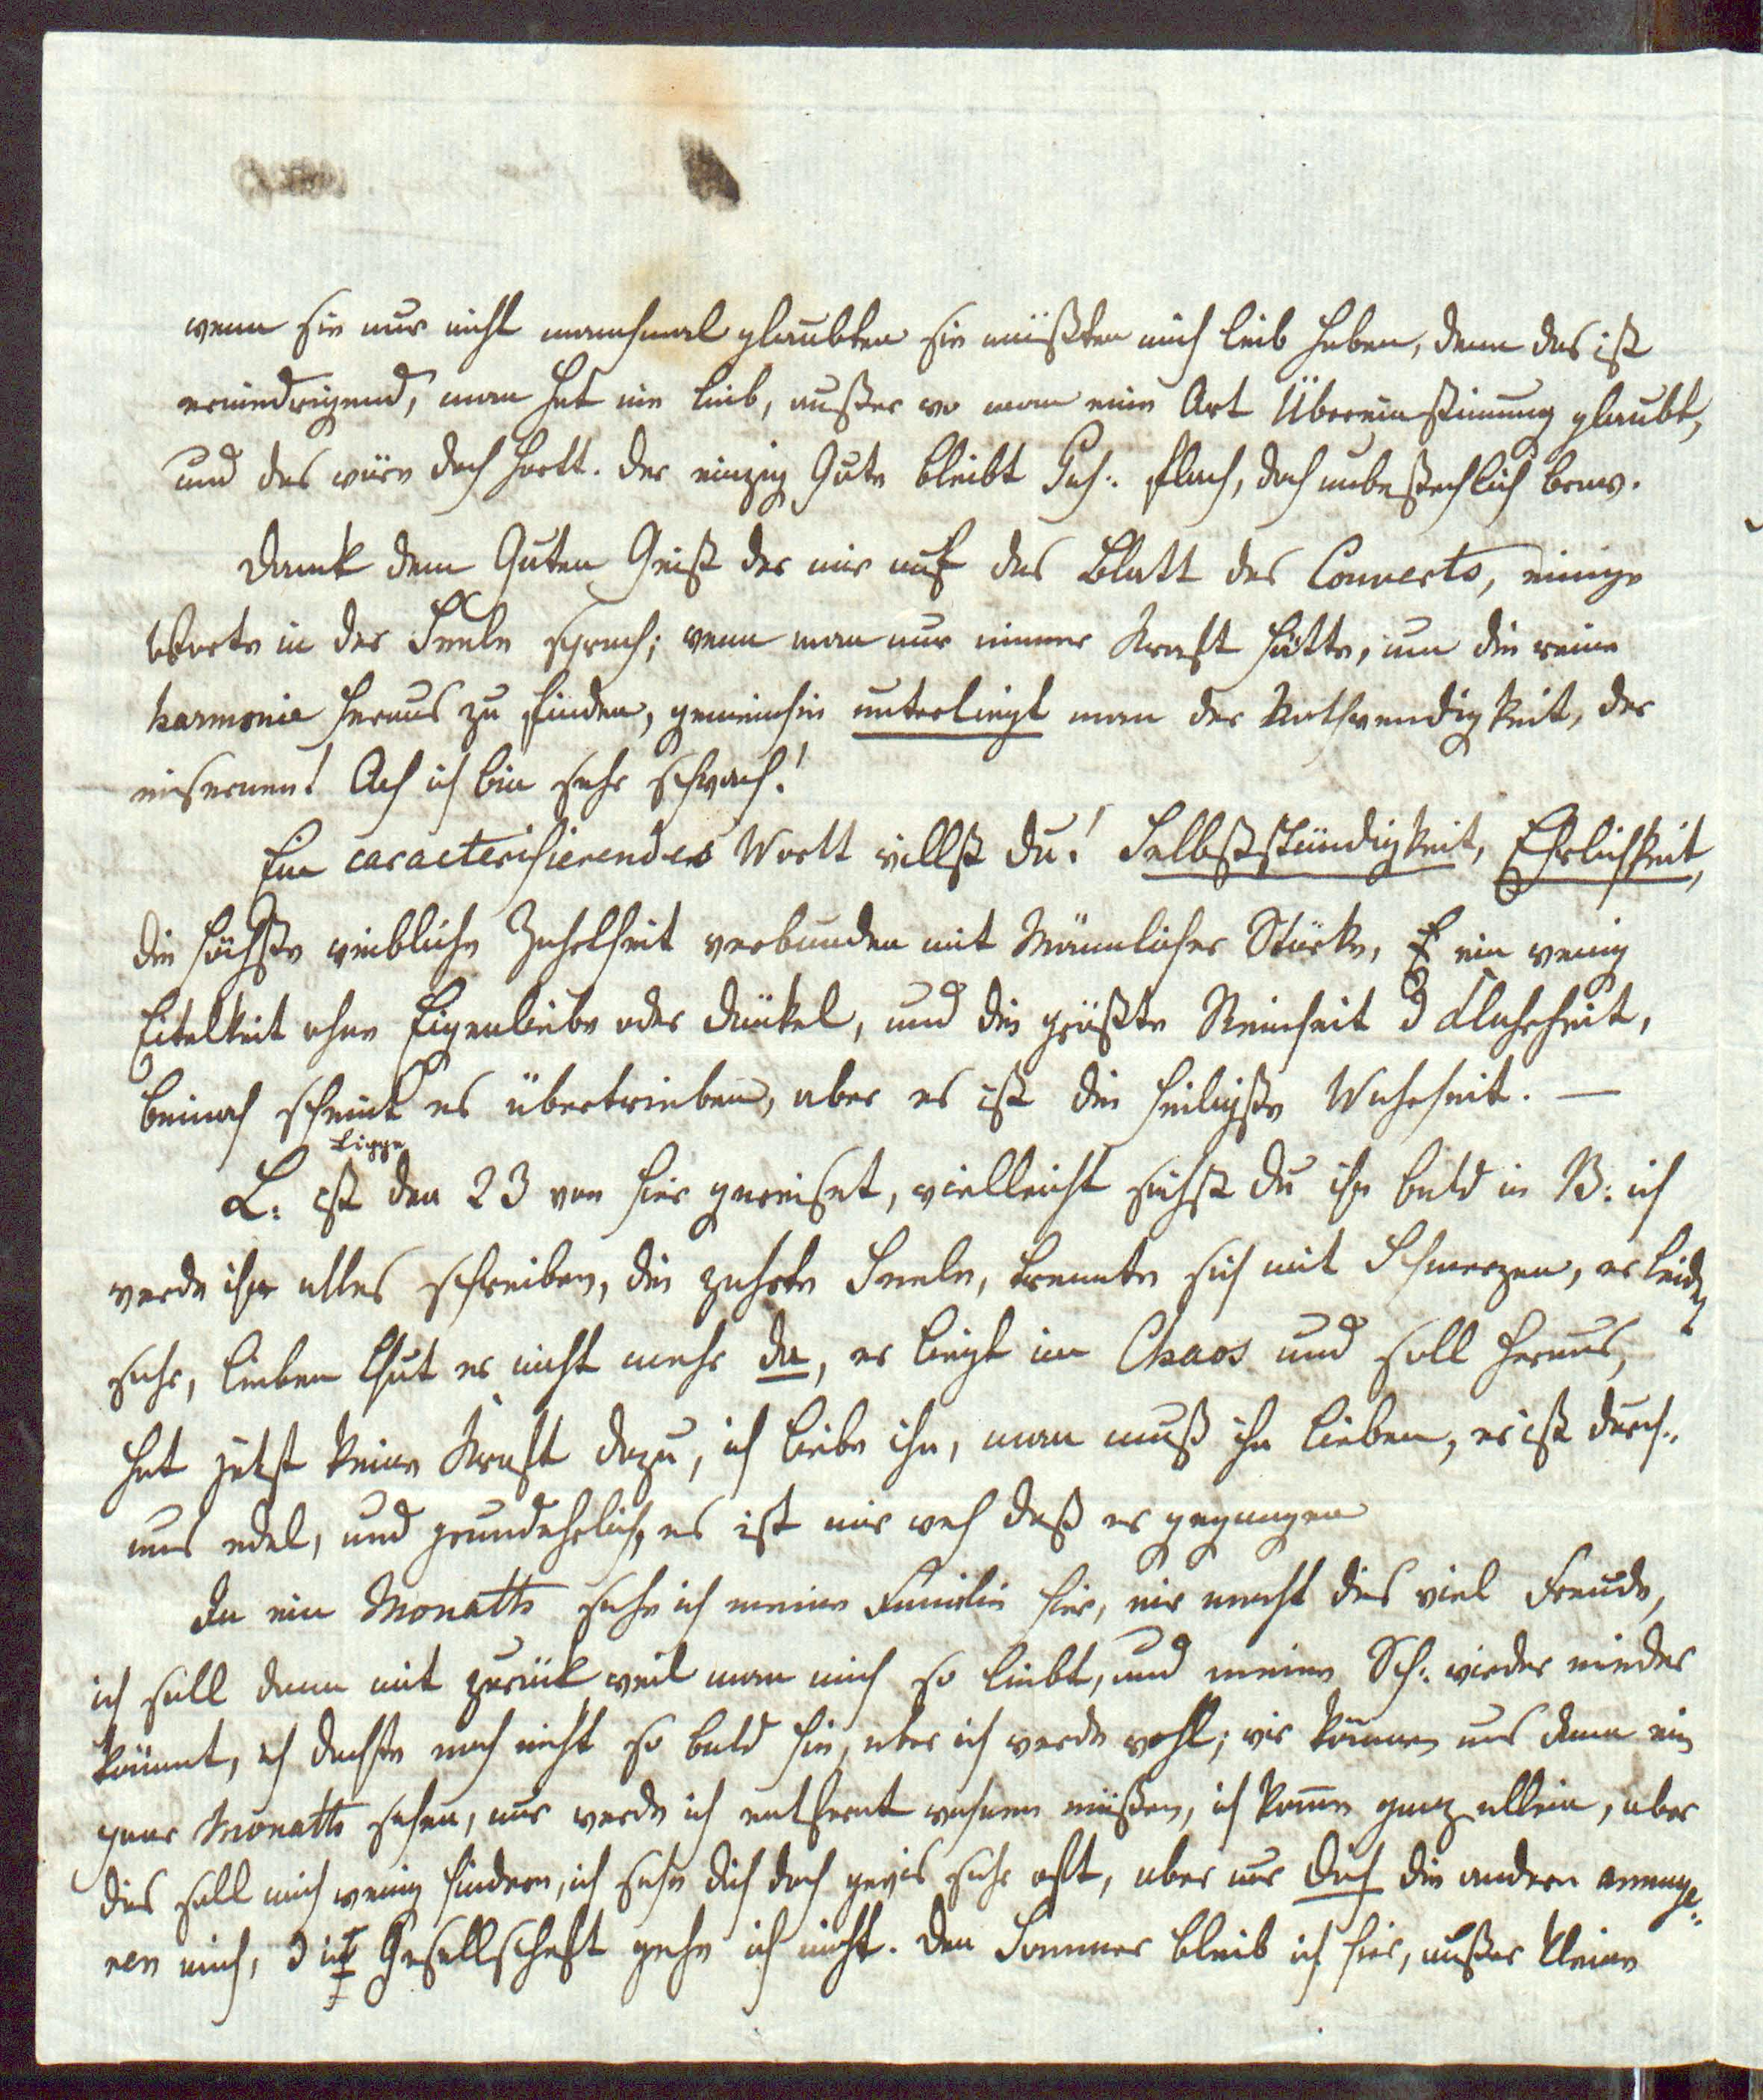 wenn sie nur nicht manchmal glaubten sie müßten mich lieb haben, denn das ist
erniedrigend, man hat nie lieb, außer wo man eine Art Übereinstimung glaubt,
und das wäre doch hartt. der einzig Gute bleibt flach, doch unbestechlich brav.
Dank dem Guten Geist der mir auf das Blatt des Couverts, einige
Worte in der Seele sprach; wenn man nur immer Kraft hätte, um die reine
harmonie heraus zu finden, gemeinhin unterliegt man der Nothwendigkeit, der
eisernen! Ach ich bin sehr schwach!
Ein caracterisierendes Wortt willst du! Selbstständigkeit, Ehrlichkeit,
die höchste weibliche Zahrtheit verbunden mit Mänlicher Stärke, ein wenig
Eitelkeit ohne Eigenliebe oder dünkel, und die größte Reinheit d Klahrheit,
beinah scheint es übertrieben, aber es ist die heiligste Wahrheit. —
Ligge
L: ist den 23 von hier gereiset, vielleicht siehst du ihn bald in B: ich
werde ihm alles schreiben, die zahrte Seele, trennte sich mit Schmerzen, er leidet
sehr, lieben thut er nicht mehr da, er liegt im Chaos und soll heraus,
hat jetzt keine Kraft dazu, ich liebe ihn, man muß ihn lieben, er ist durch-
aus edel, und grundehrlich, es ist mir weh daß er gegangen
In ein Monatth sehe ich meine Familie hier, mir macht dies viel Freude,
ich soll dann mit zurück weil man mich so liebt, und meine Sch: wieder nieder
kömmt, ich dachte noch nicht so bald hin, aber ich werde wohl; wir können uns dann ein
paar Monatth sehen, nur werde ich entfernt wohnen müßen, ich kome ganz allein, aber
dies soll mich wenig hindern, ich sehe dich doch gewis sehr oft, aber nur dich die andern ennuye-
ren mich, d in Gesellschaft gehe ich nicht. den Sommer bleib ich hier, außer kleine